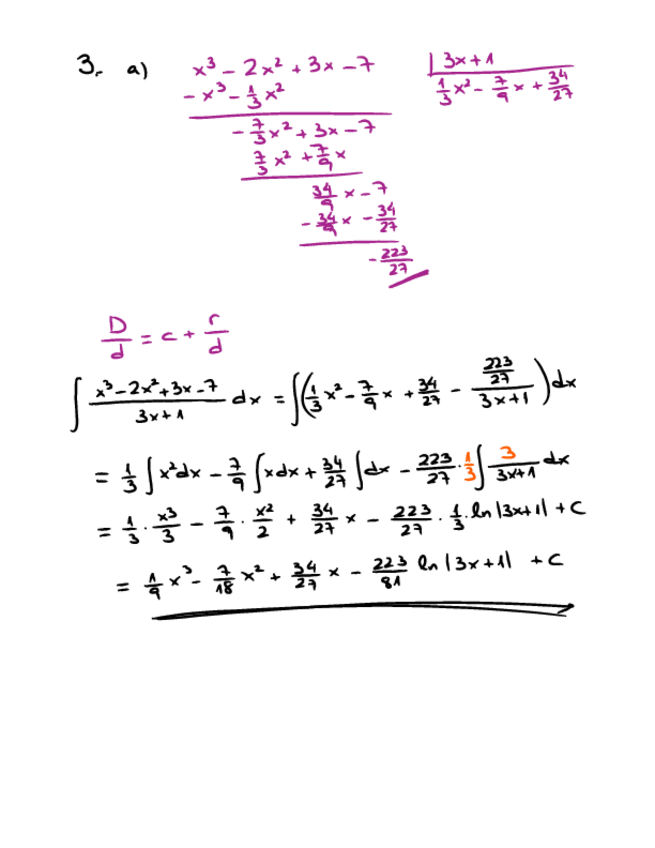 3. a) x³ - 2x² + 3x - 7 |3x+1
- x³ - 1/3 x² 1/3 x² - 7/9 x + 34/27
- 7/3 x² + 3x - 7
7/3 x² + 7/9 x
34/9 x - 7
- 34/9 x - 34/27
- 223/27
D/d = c + r/d
∫ (x³ - 2x² + 3x - 7)/(3x+1) dx = ∫ (1/3 x² - 7/9 x + 34/27 - (223/27)/(3x+1)) dx
= 1/3 ∫ x² dx - 7/9 ∫ x dx + 34/27 ∫ dx - 223/27 · 1/3 ∫ 3/(3x+1) dx
= 1/3 · x³/3 - 7/9 · x²/2 + 34/27 x - 223/27 · 1/3 · ln |3x+1| + C
= 1/9 x³ - 7/18 x² + 34/27 x - 223/81 ln |3x+1| + C